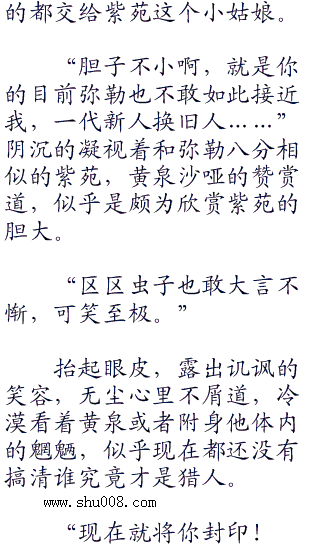 的都交给紫苑这个小姑娘。
“胆子不小啊，就是你
的目前弥勒也不敢如此接近
我，一代新人换旧人……”
阴沉的凝视着和弥勒八分相
似的紫苑，黄泉沙哑的赞赏
道，似乎是颇为欣赏紫苑的
胆大。
“区区虫子也敢大言不
惭，可笑至极。”
抬起眼皮，露出讥讽的
笑容，无尘心里不屑道，冷
漠看着黄泉或者附身他体内
的魍魉，似乎现在都还没有
搞清谁究竟才是猎人。
www.shu008.com
“现在就将你封印！